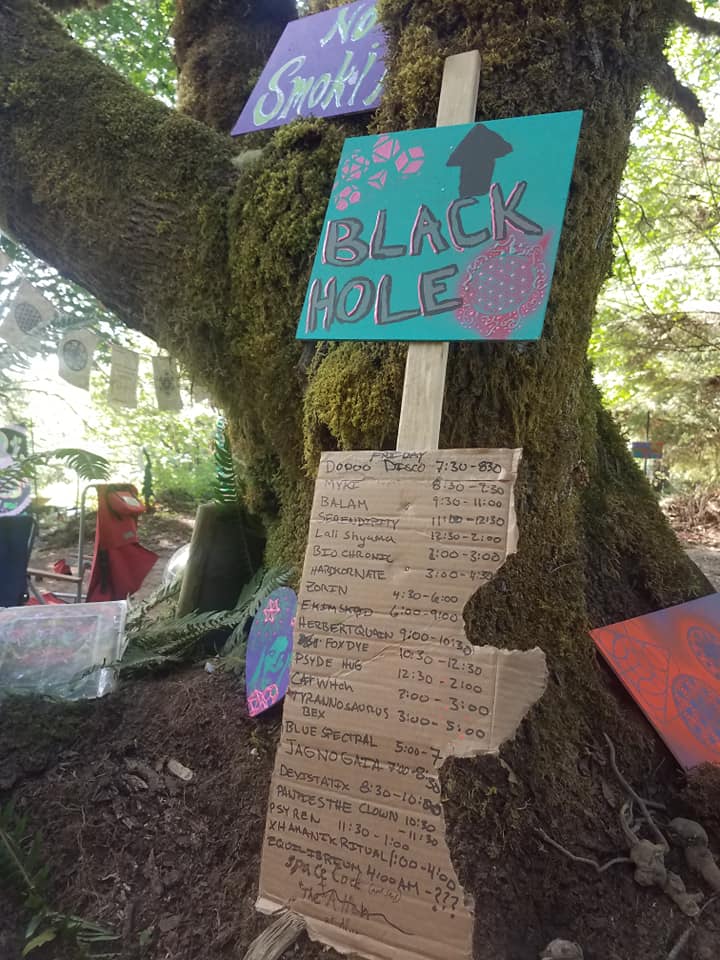 No
Smoki
BLACK
HOLE
FRIDAY
DODOO DISCO 7:30-830
MYKI 8:30-930
BALAM 9:30-11:00
SERENDIPITY 11:00-12:30
Lali Shyama 12:30-2:00
BIO CHRONIC 2:00-3:00
HARDKORNATE 3:00-4:30
ZORIN 4:30-6:00
6:00-9:00
HERBERT QUAEN 9:00-10:30
FOXDYE 10:30-12:30
PSYDE HUG 12:30-2:00
CAT WItCh 2:00-3:00
TYRANNOSAURUS 3:00-5:00
BEX
BLUE SPECTRAL 5:00-7
JAGNOGAIA 7:00-8:30
DEVISTATIX 8:30-10:30
PANTIES THE CLOWN 10:30
PSYREN 11:30-1:00 -11:30
XHAMANIK RITUAL 1:00-4:00
EQUILIBREUM 4:00AM-???
SPACE COCK
"The